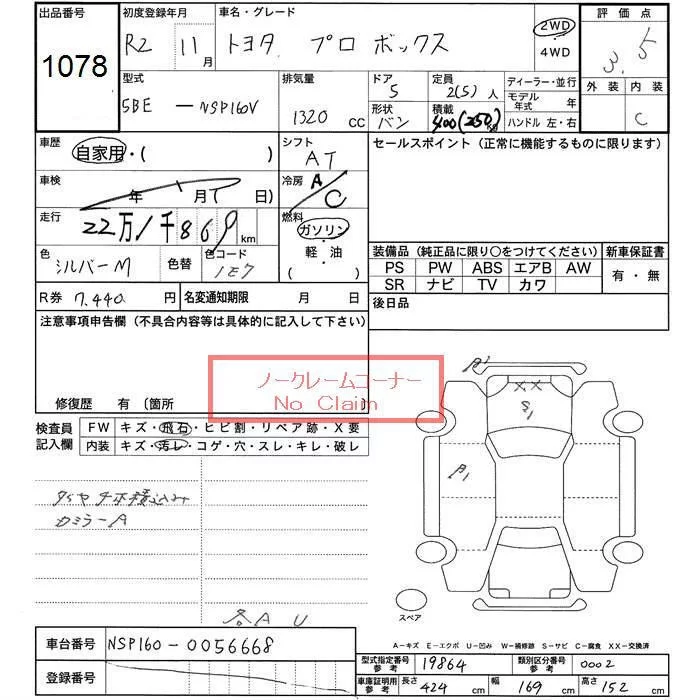 出品番号 初度登録年月 車名・グレード 評価点
1078 R2 11月 トヨタ プロボックス 2WD 4WD 3.5
型式 排気量 ドア 定員 ディーラー・並行 外装 内装
5BE -NSP160V 1320 cc 5 2(5)人 モデル年式 年 C
形状 バン 積載 400(250)kg ハンドル 左・右
車歴 自家用・( ) シフト AT セールスポイント(正常に機能するものに限ります)
車検 年 月( 日) 冷房 A/C
走行 22万1千869km 燃料 ガソリン・軽・油( )
色 シルバーM 色替 色コード 1E7
装備品(純正品に限り○をつけてください) 新車保証書
PS PW ABS エアB AW 有・無
SR ナビ TV カワ
R券 7,440円 名変通知期限 月 日 後日品
注意事項申告欄(不具合内容等は具体的に記入して下さい)
ノークレームコーナー
No Claim
修復歴 有(箇所
検査員記入欄 FW キズ・飛石・ヒビ割・リペア跡・X要
内装 キズ・汚レ・コゲ・穴・スレ・キレ・破レ
XX
カミラーA
各A U
スペア
A-キズ E-エクボ U-凹み W-補修跡 S-サビ C-腐食 XX-交換済
車台番号 NSP160-0056668
登録番号
型式指定番号参考 19864 類別区分番号参考 0002
車庫証明用参考 長さ 424cm 幅 169cm 高さ 152cm